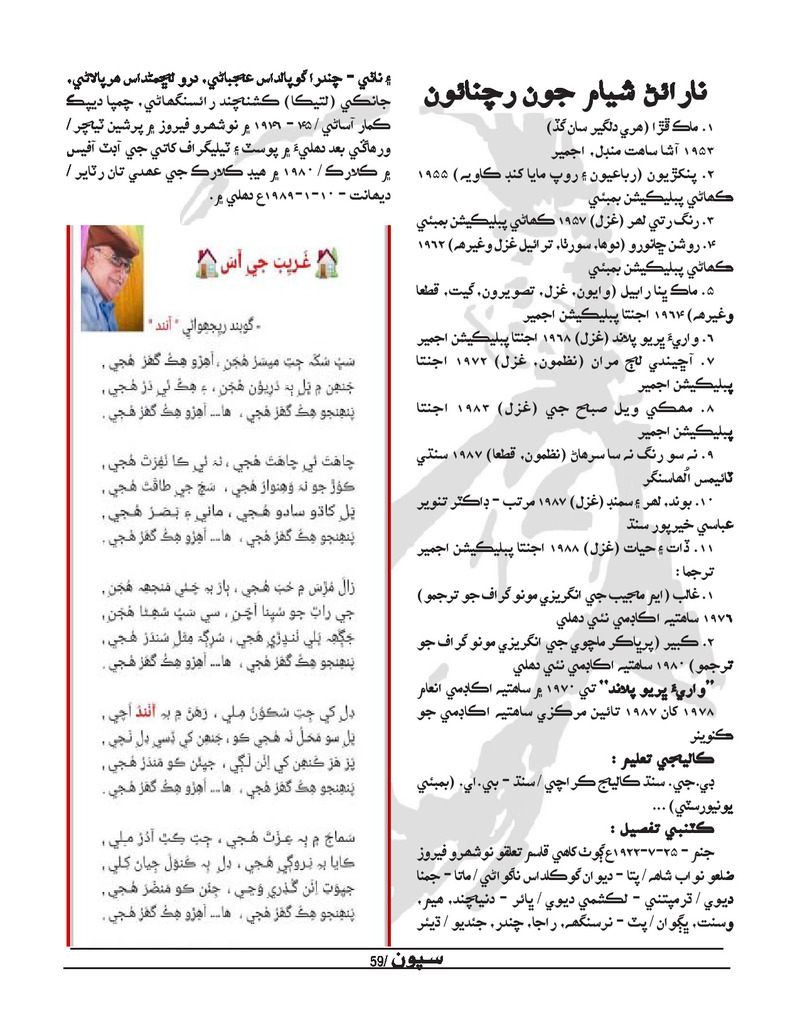 نارائڻ شيام جون رچنائون
۱. ماڪ ڦڙا (هري دلگير سان گڏ)
۱۹۵۳ آشا ساهت منڊل, اجمير
۲. پنکڙيون (رباعيون ۽ روپ مايا کنڊ ڪاويہ) ۱۹۵۵
ڪهاڻي پبليڪيشن بمبئي
۳. رنگ رتي لهر (غزل) ۱۹۵۷ ڪهاڻي پبليڪيشن بمبئي
۴. روشن ڇانورو (دوها, سورٺا, ترائيل غزل وغيره) ۱۹۶۲
ڪهاڻي پبليڪيشن بمبئي
۵. ماڪ ڀنا رابيل (وايون, غزل, تصويرون, گيت, قطعا
وغيره) ۱۹۶۴ اجنتا پبليڪيشن اجمير
۶. واريءَ ڀريو پلاند (غزل) ۱۹۶۸ اجنتا پبليڪيشن اجمير
۷. آڇيندي لڄ مران (نظمون, غزل) ۱۹۷۲ اجنتا
پبليڪيشن اجمير
۸. مهڪي ويل صباح جي (غزل) ۱۹۸۳ اجنتا
پبليڪيشن اجمير
۹. نہ سو رنگ نہ سا سرهاڻ (نظمون, قطعا) ۱۹۸۷ سنڌي
ٽائيمس اُلهاسنگر
۱۰. بوند, لهر ۽ سمنڊ (غزل) ۱۹۸۷ مرتب - ڊاڪٽر تنوير
عباسي خيرپور سنڌ
۱۱. ڏات ۽ حيات (غزل) ۱۹۸۸ اجنتا پبليڪيشن اجمير
ترجما :
۱. غالب (ايم مجيب جي انگريزي مونوگراف جو ترجمو)
۱۹۷۶ ساهتيہ اڪاڊمي نئي دهلي
۲. ڪبير (پرڀاڪر ماچوي جي انگريزي مونوگراف جو
ترجمو) ۱۹۸۰ ساهتيہ اڪاڊمي نئي دهلي
”واريءَ ڀريو پلاند“ تي ۱۹۷۰ ۾ ساهتيہ اڪاڊمي انعام
۱۹۷۸ کان ۱۹۸۷ تائين مرڪزي ساهتيہ اڪاڊمي جو
ڪنوينر
ڪاليجي تعليم :
ڊي.جي. سنڌ ڪاليج ڪراچي / سنڌ - بي.اي. (بمبئي
يونيورسٽي) ...
ڪٽنبي تفصيل :
جنم - ۲۵-۷-۱۹۲۲ع ڳوٺ کاهي قاسم تعلقو نوشهرو فيروز
ضلعو نواب شاھ / پتا - ديوان گوڪلداس ناگواڻي / ماتا - جمنا
ديوي / ڌرمپتني - لڪشمي ديوي / ڀائر - دنيچند, هيم,
وسنت, ڀڳوان / پٽ - نرسنگهہ, راجا, چندر, جئديو / ڌيئر
۽ ناٿي - چندرا گوپالداس عجباڻي, درو لڇمڻداس هرپالاڻي,
جانڪي (لتيڪا) ڪشنچند رائسنگهاڻي, چمپا ديپڪ
ڪمار آساڻي / ۴۵ - ۱۹۴۶ ۾ نوشهرو فيروز ۾ پرشين ٽيچر /
ورهاڱي بعد دهليءَ ۾ پوسٽ ۽ ٽيليگراف کاتي جي آڊٽ آفيس
۾ ڪلارڪ / ۱۹۸۰ ۾ هيڊ ڪلارڪ جي عهدي تان رٽاير /
ديهانت - ۱۰-۱-۱۹۸۹ع دهلي ۾.
غَريب جي آسَ
- گوبند ريجھواڻي " آنند "
سَڀُ سُکَہ جِتِ ميسَرُ هُجَن ، اَهِڙو هِڪُ گَھَرُ هُجي ,
جَنهِن ۾ ڀَل ٻہ دَريُون هُجَن ، ۽ هِڪُ ئي دَرُ هُجي ,
پَنهِنجو هِڪُ گَھَرُ هُجي ، ها.... اَهِڙو هِڪُ گَھَرُ هُجي .
چاهَتَ ئي چاهَتَ هُجي ، نَہ ئي ڪا نَفِرَتَ هُجي ,
ڪُوڙَ جو نَہ وَهِنوارُ هُجي ، سَچَ جي طاقَتَ هُجي ,
ڀَل کاڌو سادو هُجي ، ماني ۽ بَصَرُ هُجي ,
پَنهِنجو هِڪُ گَھَرُ هُجي ، ها.... اَهِڙو هِڪُ گَھَرُ هُجي .
زالَ مُڙسَ ۾ حُبَ هُجي ، ٻارَ بہ چَئي مَنجهہ هُجَن ,
جي راتِ جو سُپِنا اَچَن ، سي سَڀُ سُهِڻا هُجَن ,
جَڳِهہ ڀَلي نَنڍِڙي هُجي ، سُرڳِہ مِثلِ سُندَرُ هُجي ,
پَنهِنجو هِڪُ گَھَرُ هُجي ، ها.... اَهِڙو هِڪُ گَھَرُ هُجي .
دِلِ کي جِتِ سُڪُونُ مِلي ، رَهَڻَ ۾ بہ آنَندُ اَچي ,
ڀَل سو مَحَلُ نَہ هُجي ڪو ، جَنهِن کي ڏِسي دِلِ نَچي ,
پَرَ هَرَ ڪَنهِن کي اِئَن لَڳي ، جيئَن ڪو مَندَرُ هُجي ,
پَنهِنجو هِڪُ گَھَرُ هُجي ، ها.... اَهِڙو هِڪُ گَھَرُ هُجي .
سَماجَ ۾ بہ عِزَتَ هُجي ، جِتِ ڪِٿِ آدَرُ مِلي ,
ڪايا بہ نِروڳي هُجي ، دِلِ بہ ڪَنوَلَ جِيان کِلي ,
جِيوَتِ اِئَن گُذِري وَڃي ، جِئَن ڪو مَنظَرُ هُجي ,
پَنهِنجو هِڪُ گَھَرُ هُجي ، ها.... اَهِڙو هِڪُ گَھَرُ هُجي .
سپون /59